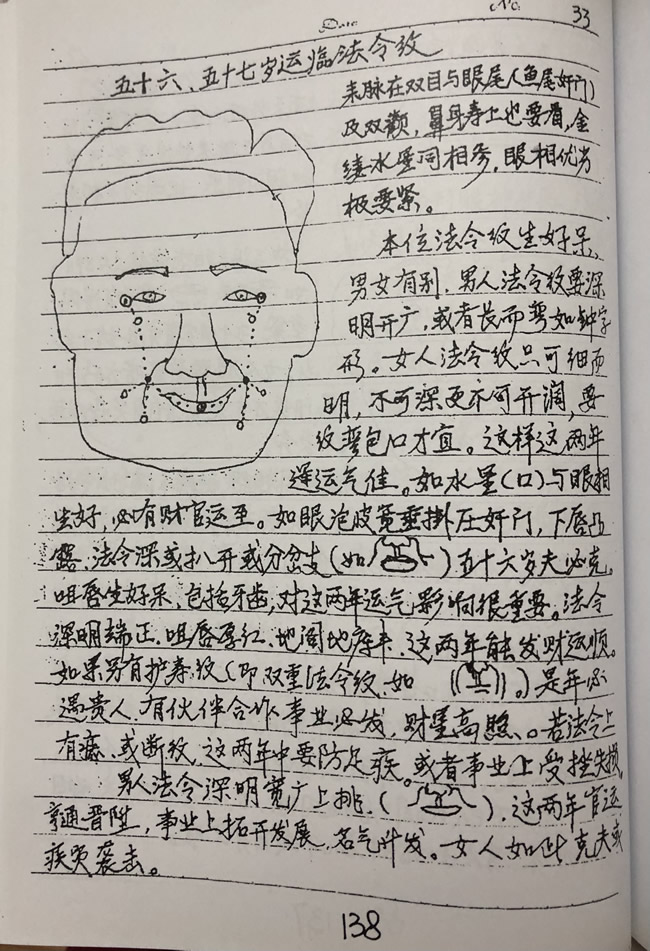 Date
No.
33
五十六、五十七岁运临法令纹
来脉在双目与眼尾(鱼尾奸门)
及双颧，鼻身寿上也要看，金
缕水星同相参，眼相优劣
极要紧。
本位法令纹生好呆、
男女有别，男人法令纹要深
明开广，或者长而弯如钟字
形。女人法令纹只可细而
明，不可深更不可开阔，要
纹弯包口才宜。这样这两年
运气佳。如水星(口)与眼相
生好，必有财官运至。如眼泡皮宽垂掛压奸门，下唇凸
露、法令深或扒开或分岔支(如 )五十六岁夫必克。
咀唇生好呆、包括牙齿，对这两年运气影响很重要。法令
深明端正、咀唇厚红、地阁地库丰、这两年能发财运顺。
如果另有护寿纹(即双重法令纹、如 )。是年必
遇贵人、有伙伴合作事业必发，财星高照。若法令上
有痣、或断纹，这两年中要防足疾。或者事业上受挫失损。
男人法令深明宽广上挑、( )，这两年官运
亨通晋陞，事业上拓开发展，名气叶发。女人如此克夫或
疾灾袭击。
138